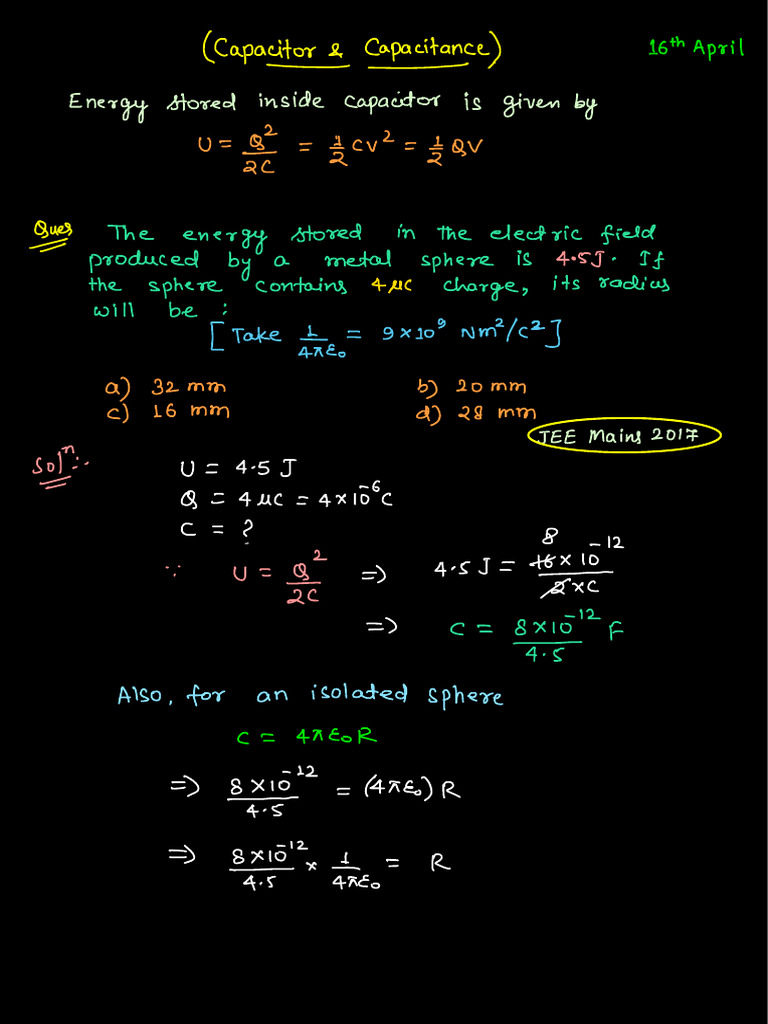 (Capacitor & Capacitance)
16th April
Energy stored inside capacitor is given by
U = Q²/2C = 1/2 CV² = 1/2 QV
Ques The energy stored in the electric field
produced by a metal sphere is 4.5J. If
the sphere contains 4 μC charge, its radius
will be :
[Take 1/4πε₀ = 9×10⁹ Nm²/C²]
a) 32 mm b) 20 mm
c) 16 mm d) 28 mm
JEE Mains 2017
Solⁿ :-
U = 4.5 J
Q = 4 μC = 4×10⁻⁶C
C = ?
∵ U = Q²/2C => 4.5 J = 8 16×10⁻¹²/2×C
=> C = 8×10⁻¹²/4.5 F
Also, for an isolated sphere
C = 4πε₀R
=> 8×10⁻¹²/4.5 = (4πε₀) R
=> 8×10⁻¹²/4.5 × 1/4πε₀ = R